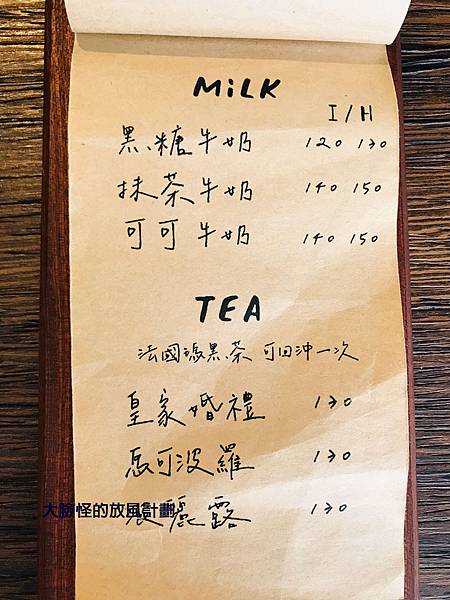 MiLK
I/H
黑糖牛奶 120 130
抹茶牛奶 140 150
可可牛奶 140 150
TEA
法國瑪黑茶 可回沖一次
皇家婚禮 130
馬可波羅 130
大臉怪的放風計劃
麗露 130